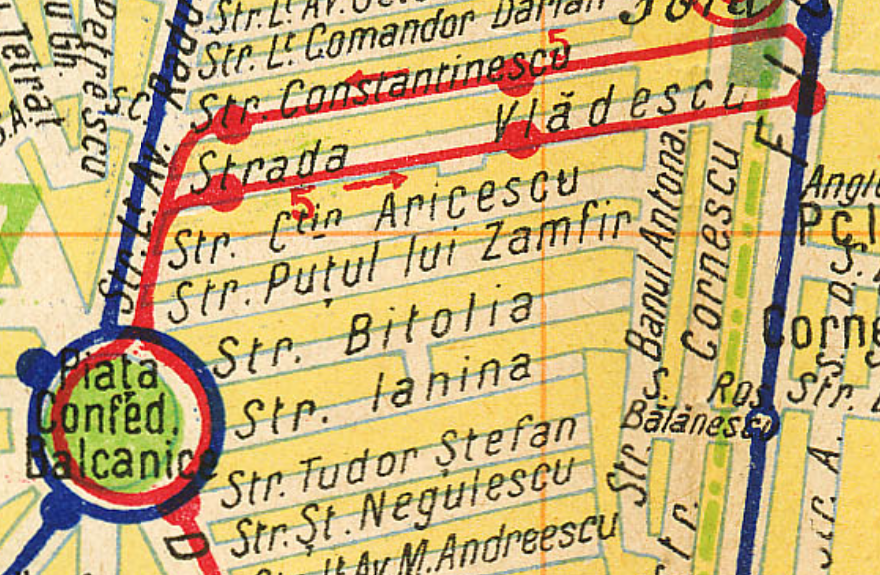 Str. Lt. Comandor Darian
Str. Constantinescu
5
Strada Vlădescu
5
Str. Ctin Aricescu
Str. Puțul lui Zamfir
Str. Bitolia
Str. Ianina
Str. Tudor Ștefan
Str. Șt. Negulescu
Av. M. Andreescu
Piața
Confed.
Balcanice
Str. Lt. Av.
Radu
Petrescu
Tetrat
Gh.
Sc.
Banul Antona
Cornescu
Str.
S.
Bălănescu
Ros
Str.
Str. A.
D
F